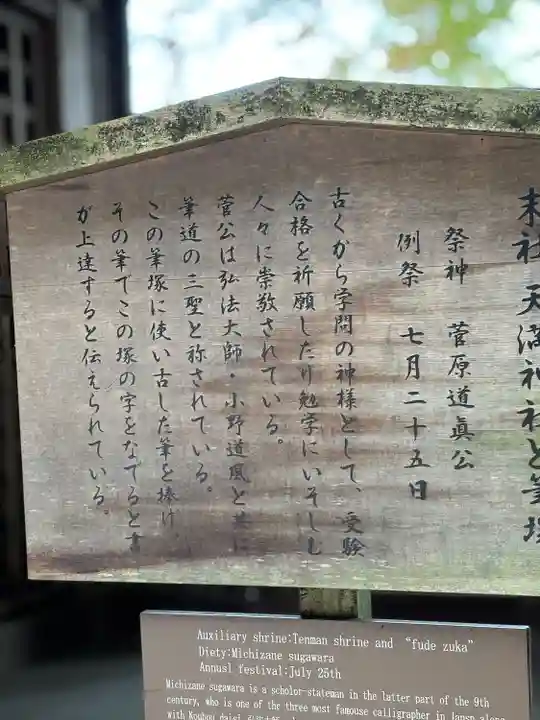 末社 天満神社と筆塚
祭神 菅原道眞公
例祭 七月二十五日
古くから学問の神様として、受験
合格を祈願したり勉学にいそしむ
人々に崇敬されている。
菅公は弘法大師・小野道風と共に
筆道の三聖と称されている。
この筆塚に使い古した筆を捧げ
その筆でこの塚の字をなでると書
が上達すると伝えられている。
Auxiliary shrine:Tenman shrine and “fude zuka”
Diety:Michizane sugawara
Annual festival:July 25th
Michizane sugawara is a scholor-stateman in the latter part of the 9th
century, who is one of the three most famouse calligrapher in Japan along
with Kouhou daisi